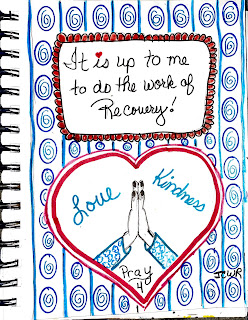 It is up to me
to do the work of
Recovery!
Love
Kindness
Pray
4
JCWR